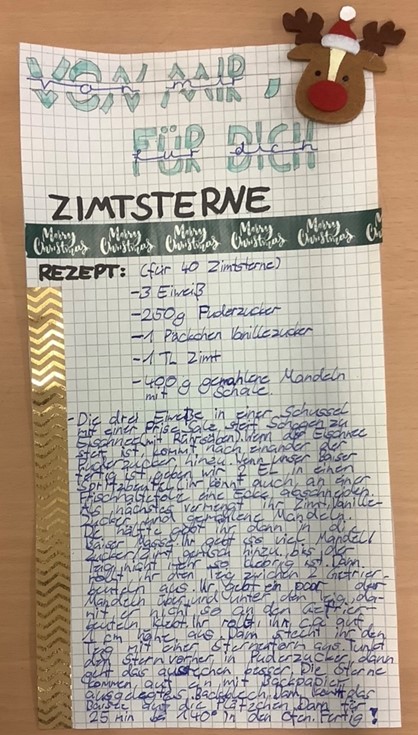 VON MIR,
von mir
FÜR DICH
für dich
ZIMTSTERNE
Merry Christmas Merry Christmas Merry Christmas Merry Christmas Merry Christmas Me Ch
REZEPT: (für 40 Zimtsterne)
-3 Eiweiß
-250g Puderzucker
-1 Päckchen Vanillezucker
-1 TL Zimt
-400g gemahlene Mandeln
mit Schale.
-Die drei Eiweiße in einer Schüssel
mit einer Prise Salz steif schlagen zu
Eischnee mit Rührstäben. Wenn der Eischnee
steif ist, kommt nach einander der
Puderzucker hinzu. Wenn unser Baiser
fertig ist, geben wir EL in einen
Spritzbeutel. Ihr könnt auch an einer
Frischhaltefolie eine Ecke abschneiden.
Als nächstes vermengt ihr Zimt, Vanille-
zucker und gemahlene Mandeln.
Die hälfte gebt ihr dann in die
Baiser Masse. Ihr gebt so viel Mandel/
zucker/zimt gemisch hinzu, bis der
Teig nicht mehr so klebrig ist. Dann
rollt ihr den Teig zwischen 2 Gefrier-
beuteln aus. Ihr gebt ein paar
Mandeln über und unter den Teig, da-
mit er nicht so an den Gefrier-
beuteln klebt. Ihr rollt ihn ca. gut
1 cm höhe aus. Dann stecht ihr den
Teig mit einer Sternenform aus. Tunkt
den Stern vorher in Puderzucker, dann
geht das ausstechen besser. Die Sterne
kommen auf ein mit Backpapier
ausgelegtes Backblech. Dann kommt das
Baiser auf die Plätzchen. Dann für
25 min 140° in den Ofen. Fertig!